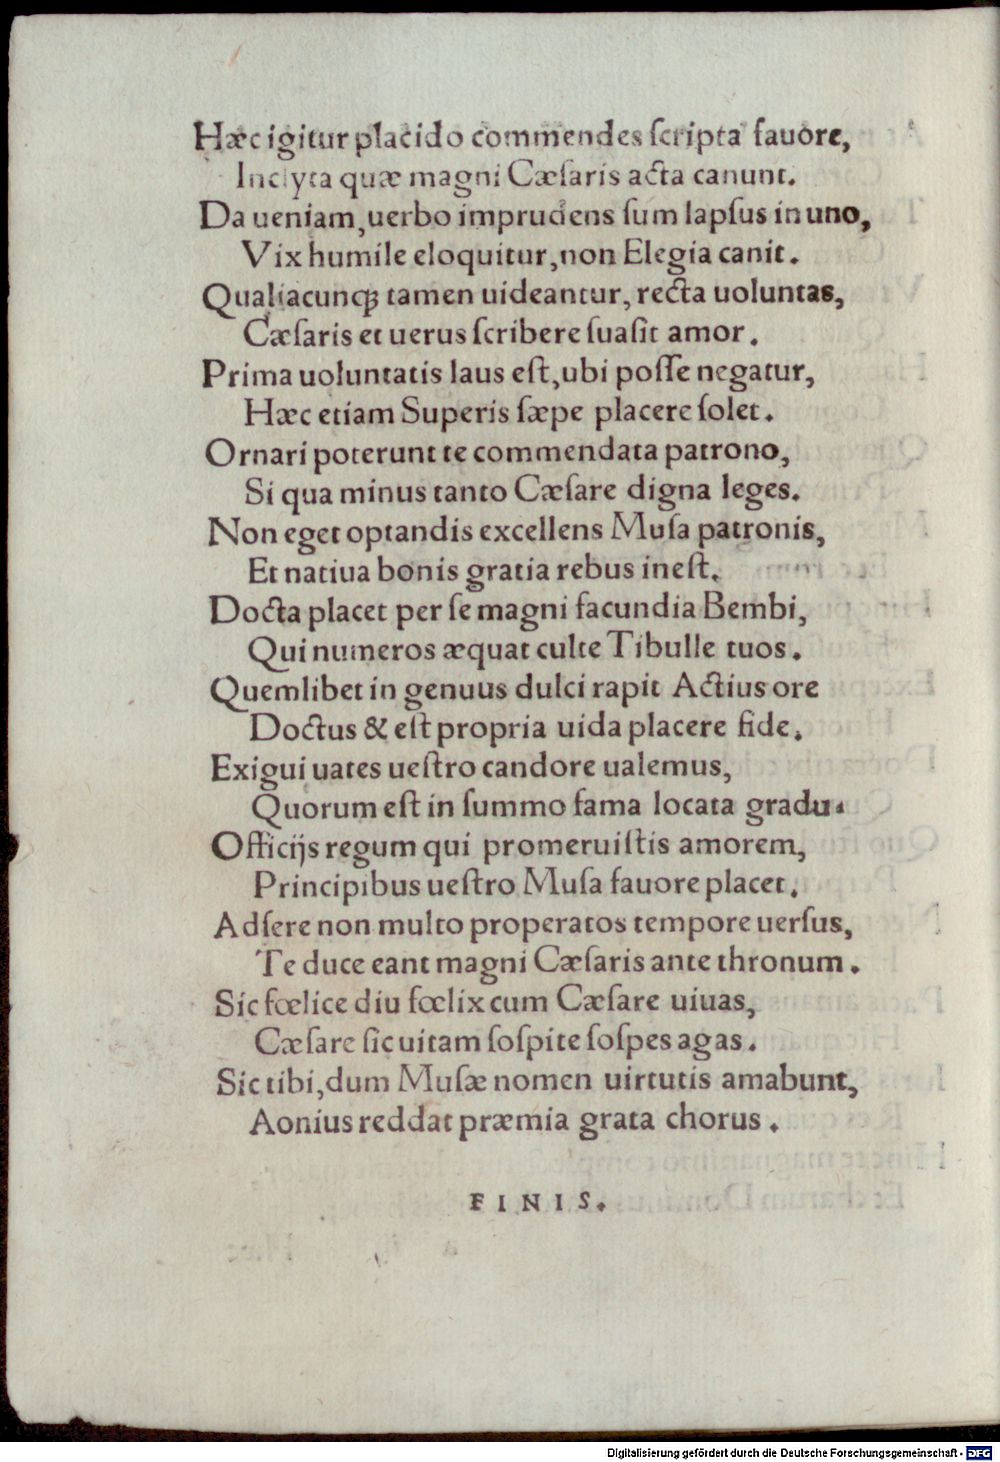 Hæc igitur placido commendes ſcripta fauore,
Inclyta quæ magni Cæſaris acta canunt.
Da ueniam, uerbo imprudens ſum lapſus in uno,
Vix humile eloquitur, non Elegia canit.
Qualiacunqꝫ tamen uideantur, recta uoluntas,
Cæſaris et uerus ſcribere ſuaſit amor.
Prima uoluntatis laus eſt, ubi poſſe negatur,
Hæc etiam Superis ſæpe placere ſolet.
Ornari poterunt te commendata patrono,
Si qua minus tanto Cæſare digna leges.
Non eget optandis excellens Muſa patronis,
Et natiua bonis gratia rebus ineſt.
Docta placet per ſe magni facundia Bembi,
Qui numeros æquat culte Tibulle tuos.
Quemlibet in genuus dulci rapit Actius ore
Doctus & eſt propria uida placere fide.
Exigui uates ueſtro candore ualemus,
Quorum eſt in ſummo fama locata gradu.
Officijs regum qui promeruiſtis amorem,
Principibus ueſtro Muſa fauore placet.
Adſere non multo properatos tempore uerſus,
Te duce eant magni Cæſaris ante thronum.
Sic fœlice diu fœlix cum Cæſare uiuas,
Cæſare ſic uitam ſoſpite ſoſpes agas.
Sic tibi, dum Muſæ nomen uirtutis amabunt,
Aonius reddat præmia grata chorus.
FINIS.
Digitalisierung gefördert durch die Deutsche Forschungsgemeinschaft - DFG